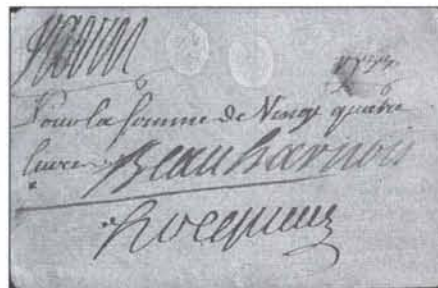 1733
Pour la somme de Vingt quatre
livres
Beauharnois
hocquart